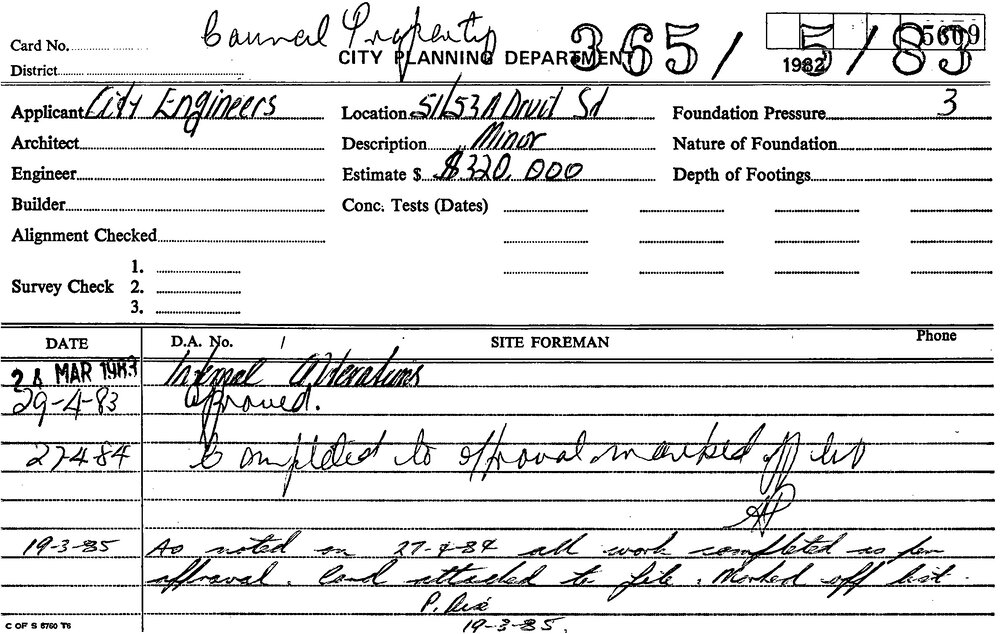 Council Property
Card No.
CITY PLANNING DEPARTMENT 365/5/83
5609
District
1982
Applicant City Engineers Location 51/53A Druit St Foundation Pressure 3
Architect Description Minor Nature of Foundation
Engineer Estimate $ $320,000 Depth of Footings
Builder Conc. Tests (Dates)
Alignment Checked
1.
Survey Check 2.
3.
DATE D.A. No. / SITE FOREMAN Phone
MAR 1983 Internal Alterations
29-4-83 approved.
27-4-84 Completed to approval marked off list
AP
19-3-85 As noted on 27-4-84 all work completed as per
approval. Card attached to file. Marked off list.
P.
19-3-85.
C OF S 8760 T6